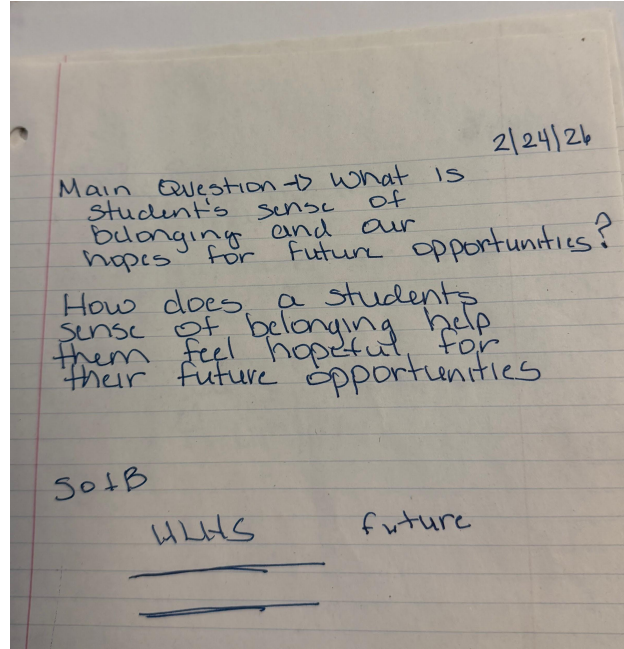 2/24/26
Main Question → What is
student's sense of
belonging and our
hopes for future opportunities?
How does a students
sense of belonging help
them feel hopeful for
their future opportunities
SofB
HLHS future